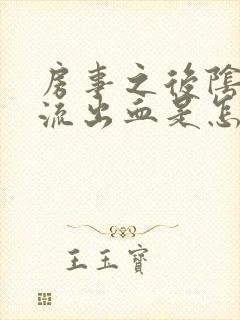 房事之後陰
流出血是怎
王玉寶